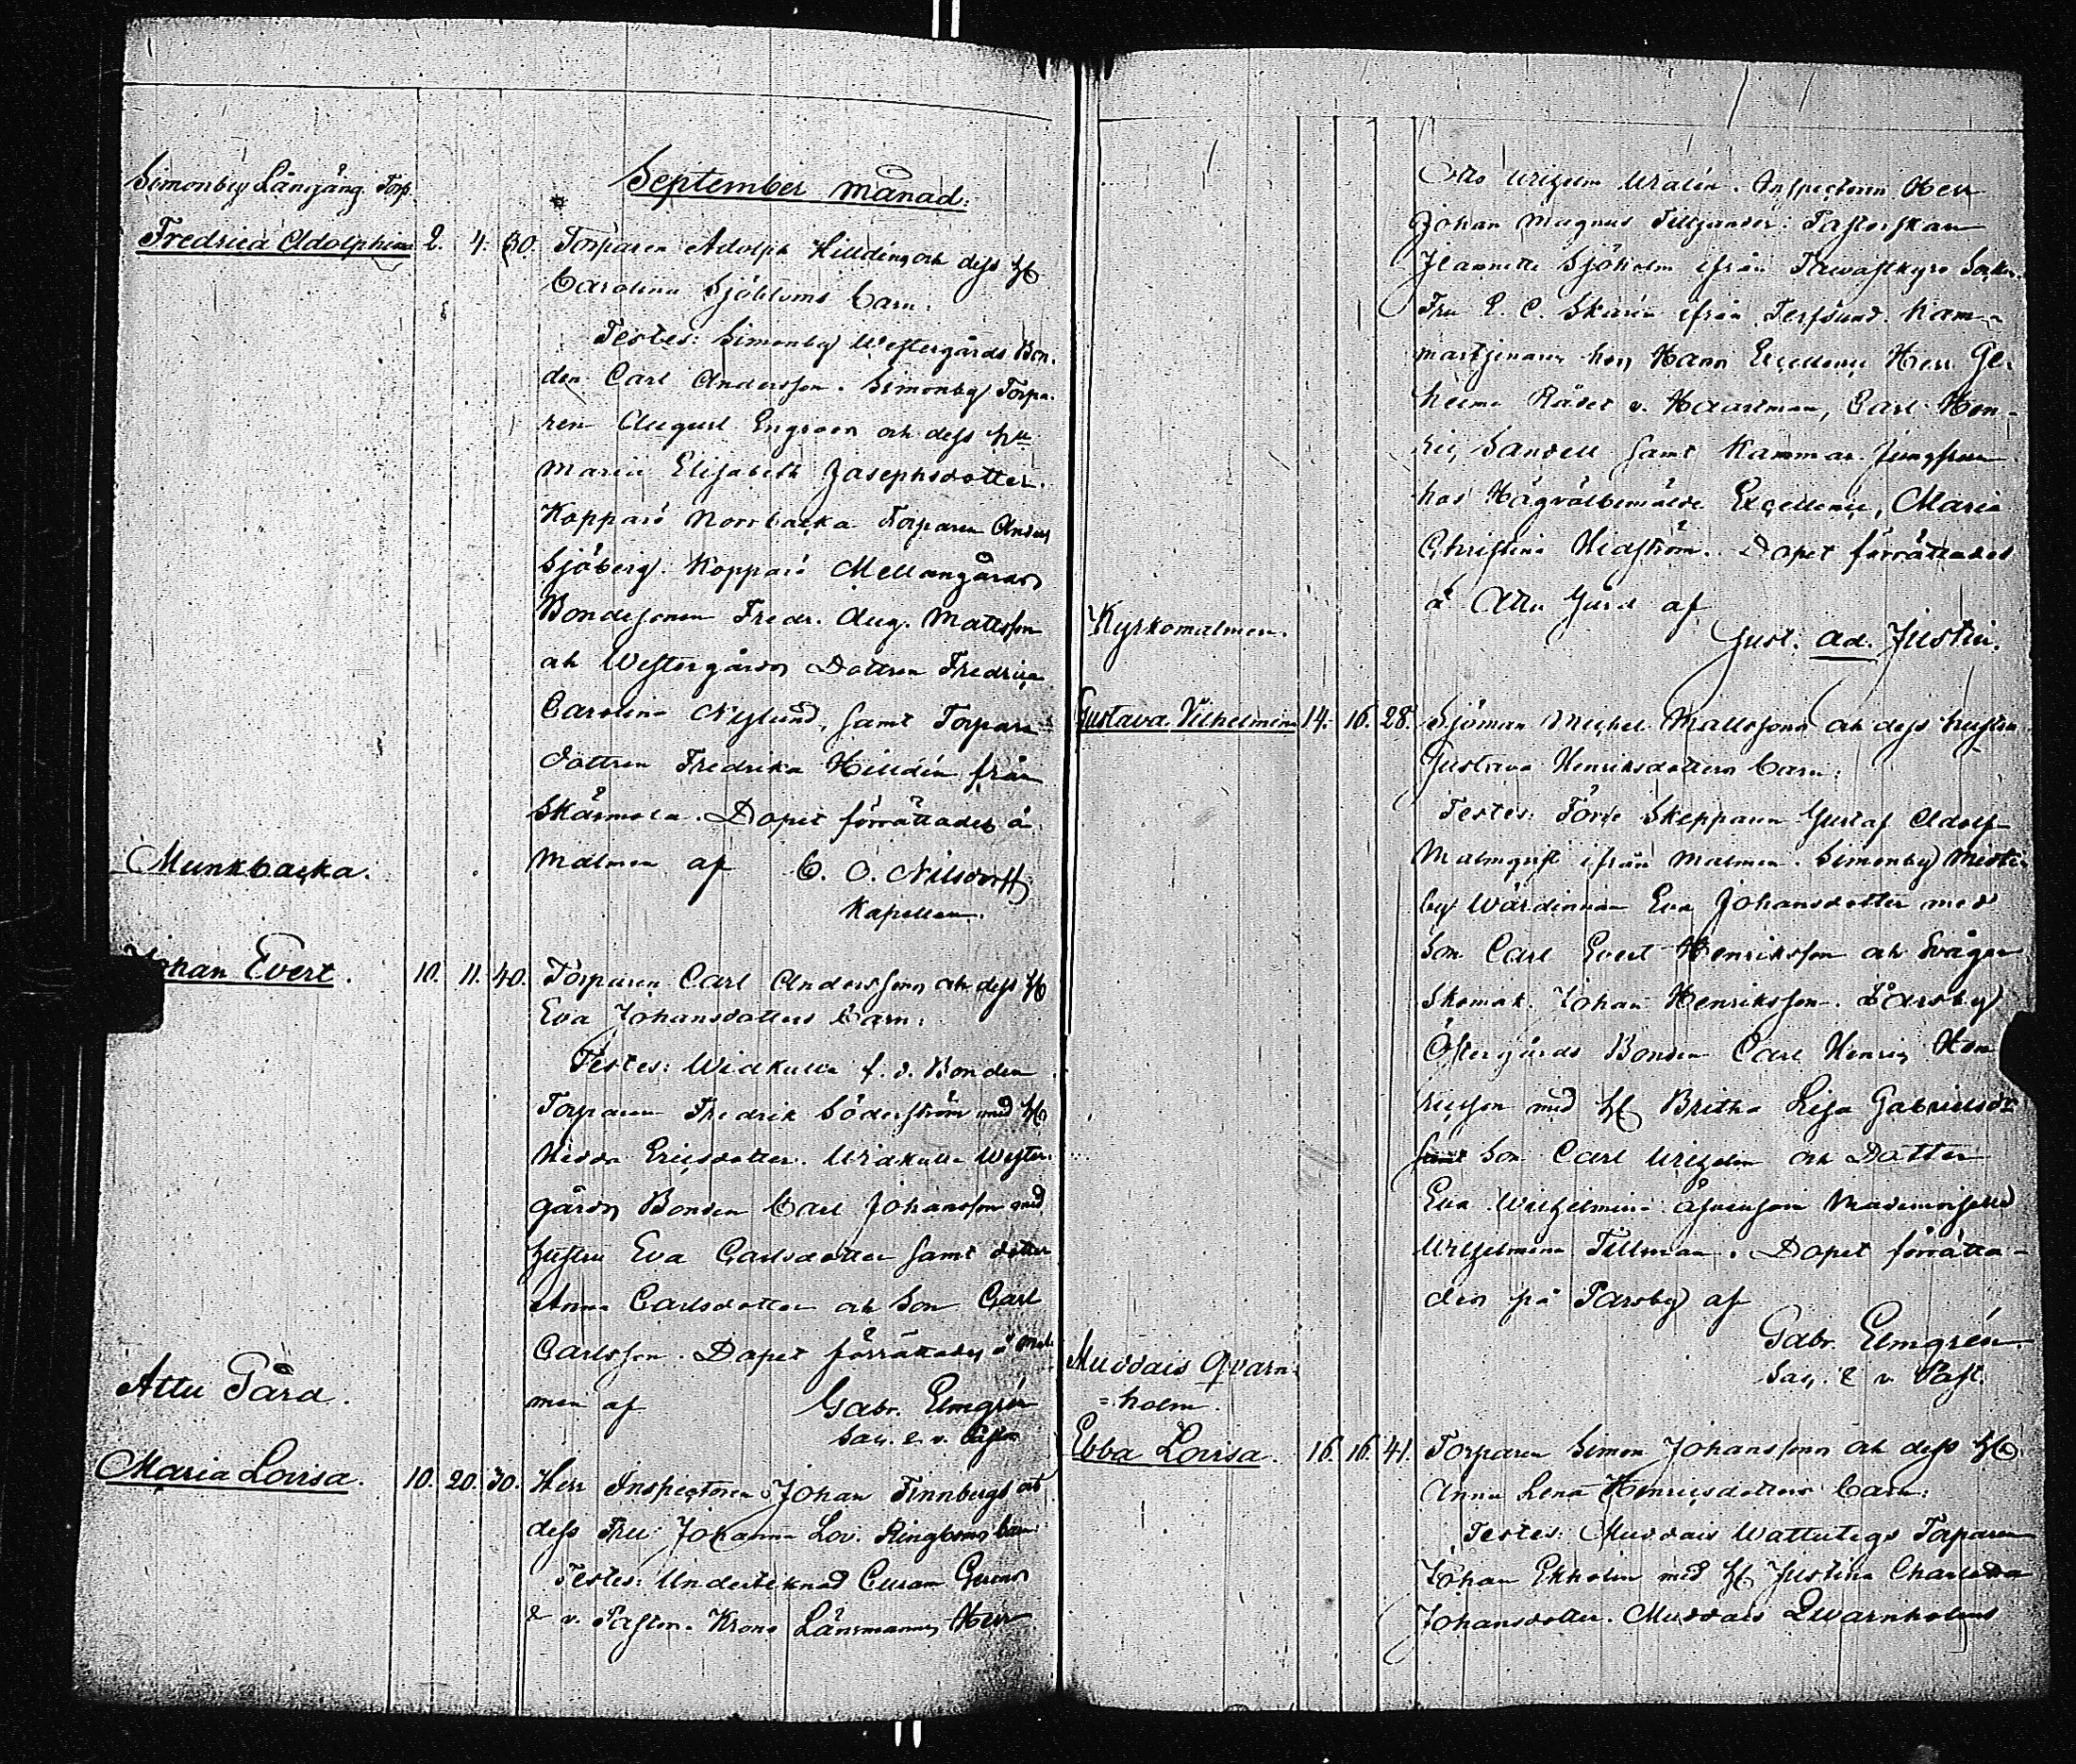 September månad.
Simonby Länsjäng Torp.
Fredrica Adolphina 2. 4. 30. Torparen Adolph Hilldins och dess H
Carolina Sjöbloms barn.
Testes: Simonby Westergårds Bon-
den Carl Andersson. Simonby Torpa-
ren August Engroos och dess Hu
Maria Elisabeth Josephsdotter.
Kopparö Norrbacka Torparen Anders
Sjöberg. Kopparö Mellangårds
Bondesonen Fredr. Aug. Mattsson
och Westergårds Dottren Fredrica
Carolina Nylund, samt Torpare
dottren Fredrika Hilldén från
Skärmola. Dopet förrättades å
Malmen af C. O. Nilsdorff
Kapellan.
Munkbacka.
Johan Evert. 10. 11. 40. Torparen Carl Anderssons och dess H
Eva Johansdotters barn:
Testes: Widkulla f. d. Bonden
Torparen Fredrik Söderström med H
Hedda Ericsdotter. Widkulla Wester-
gårds Bonden Carl Johansson med
hustru Eva Carlsdotter samt dotter
Anna Carlsdotter och Son Carl
Carlsson. Dopet förrättades å Mal-
men af Gabr. Elmgrén
Sac. & v. Pastor
Attu Gård.
Maria Lovisa. 10. 20. 30. Herr Inspectoren Johan Finnbergs och
dess Fru Johanna Lov. Ringboms barn
Testes: Underteknad Curam Gerens
& v. Pastor. Krono Länsmannen Herr
Otto Wilhelm Walén. Inspectorn Herr
Johan Magnus Tilljander: Pastorskan
Jeannette Sjöholm ifrån Tavastkyro Socken.
Fru E. C. Skarin ifrån Terfsund. Kam-
martjenaren hos Hans Excellence Herr Ge-
heime Rådet v. Haartman, Carl Hen-
ric Sandell samt Kammar Jungfrun
hos Högvälbemälde Excellence, Maria
Christina Hedström. Dopet förrättades
å Attu Gård af
Gust. Ad. Justin.
Kyrkomalmen.
Gustava Vilhelmina 14. 16. 28. Sjöman Michel Mattssons och dess hustru
Gustava Henriksdotters barn:
Testes: Förre Skepparen Gustaf Adolf
Malmqvist ifrån Malmen. Simonby
by Wärdinnan Eva Johansdotter med
Son Carl Evert Henriksson och Svåger
Skomak. Johan Henriksson. Parsby
Östergårds Bonden Carl Henric Hen
ricsson med H Britha Lisa Gabrielsdr
samt Son Carl Wilhelm och Dotter
Eva Wilhelmina Mademoiselle
Wilhelmina Tillman. Dopet förrätta-
des på Parsby af
Gabr. Elmgrén.
Sac. & v. Past.
Muddais Qvarn-
=holm.
Ebba Lovisa. 16. 16. 41. Torparen Simon Johanssons och dess H
Anna Lena Henricsdotters barn:
Testes: Muddais Wattutegs Torparen
Johan Ekholm med H Justina Charlotta
Johansdotter. Muddais Qwarnholms